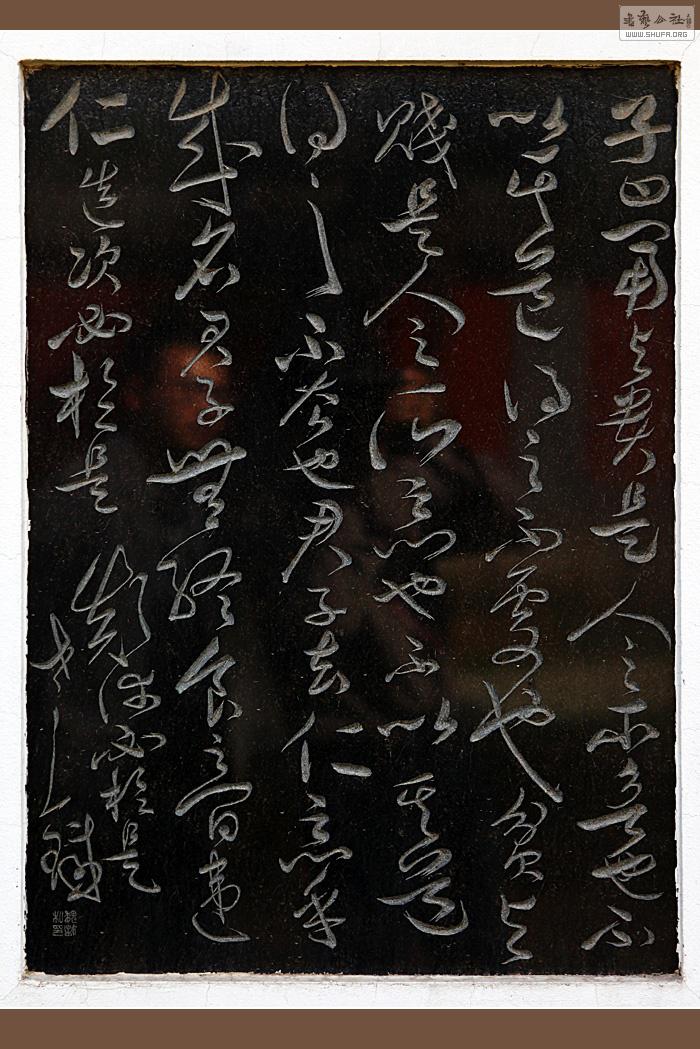 子曰富与貴是人之所欲也不
以其道得之不處也貧与
賤是人之所惡也不以其道
得之不去也君子去仁惡乎
成名君子無終食之間違
仁造次必於是顛沛必於是
书艺公社
WWW.SHUFA.ORG